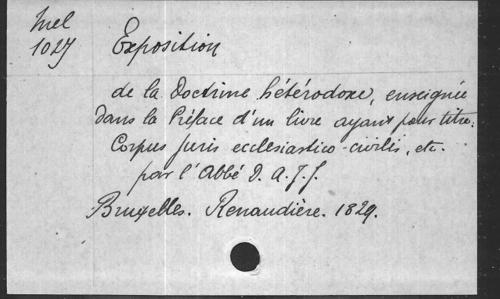 Mel
1027
Exposition
de la Doctrine hétérodoxe, enseignée
dans la Préface d'un livre ayant pour titre:
Corpus juris ecclesiastico-civilis, etc.
par l'Abbé D. A. J. J.
Bruxelles. Renaudière. 1829.